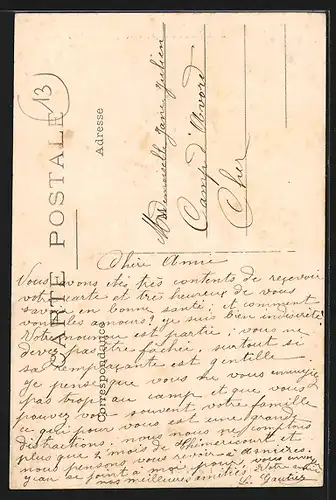 13
CARTE POSTALE
Correspondance
Adresse
Mademoiselle Jane Julien
Camp d'Avord
Cher
Chère Amie
Nous avons été très contents de recevoir
votre carte et très heureux de vous
savoir en bonne santé; et comment
vont les amours? je suis bien indiscrète!
Votre nounou est partie; vous ne
devez pas être fâchée, surtout si
sa remplaçante est gentille
je pense que vous ne vous ennuyez
pas trop au camp et que vous
pouvez voir souvent votre famille
ce qui pour vous est une grande
distraction; nous nous ne comptons
plus que 2 mois de Théméricourt et
nous pensons vous revoir à Asnières
Jean se joint à moi pour vous envoyer
nos meilleures amitiés. Votre amie
L. Gautier